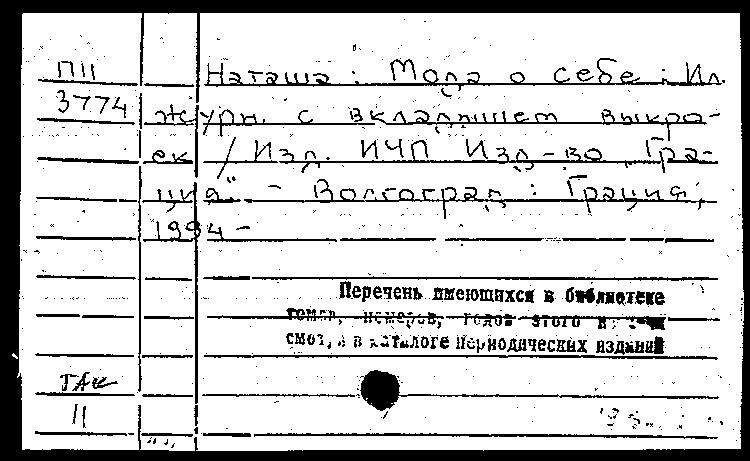 П11 Наташа : Мода о себе : Ил.
3774 журн. с вкладышем выкро-
ек / Изд. ИЧП Изд-во „Гра-
ция" - Волгоград : Грация,
1994 -
Перечень имеющихся в библиотеке
томов, номеров, годов этого
в каталоге периодических изданий
11